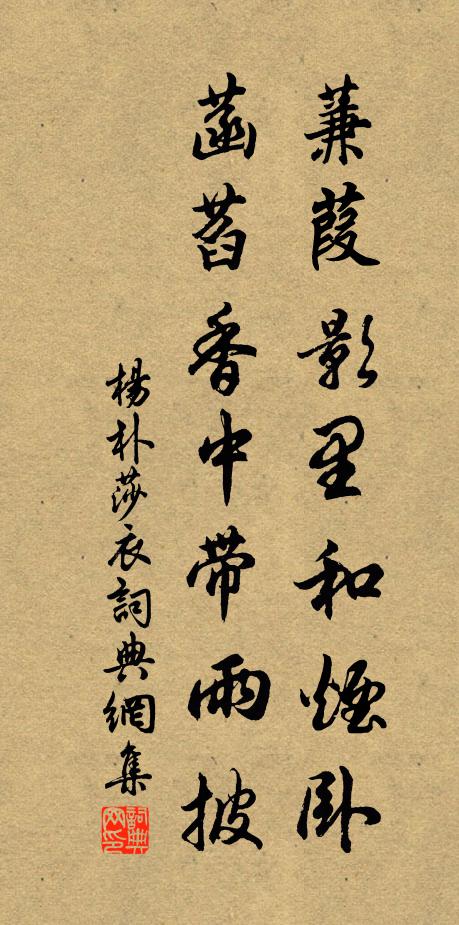 蒹葭影里和煙卧
菡萏香中带雨披
楊朴莎衣詞典網集
詞典網印